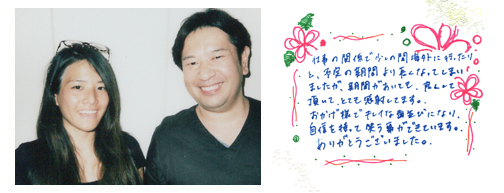 仕事の関係で少しの間海外に行ったり
と、予定の期間より長くなってしまい
ましたが、期間があいても、良くして
頂いて、とても感謝してます。
おかげ様でキレイな歯並びになり、
自信を持って笑う事ができています。
ありがとうございました。